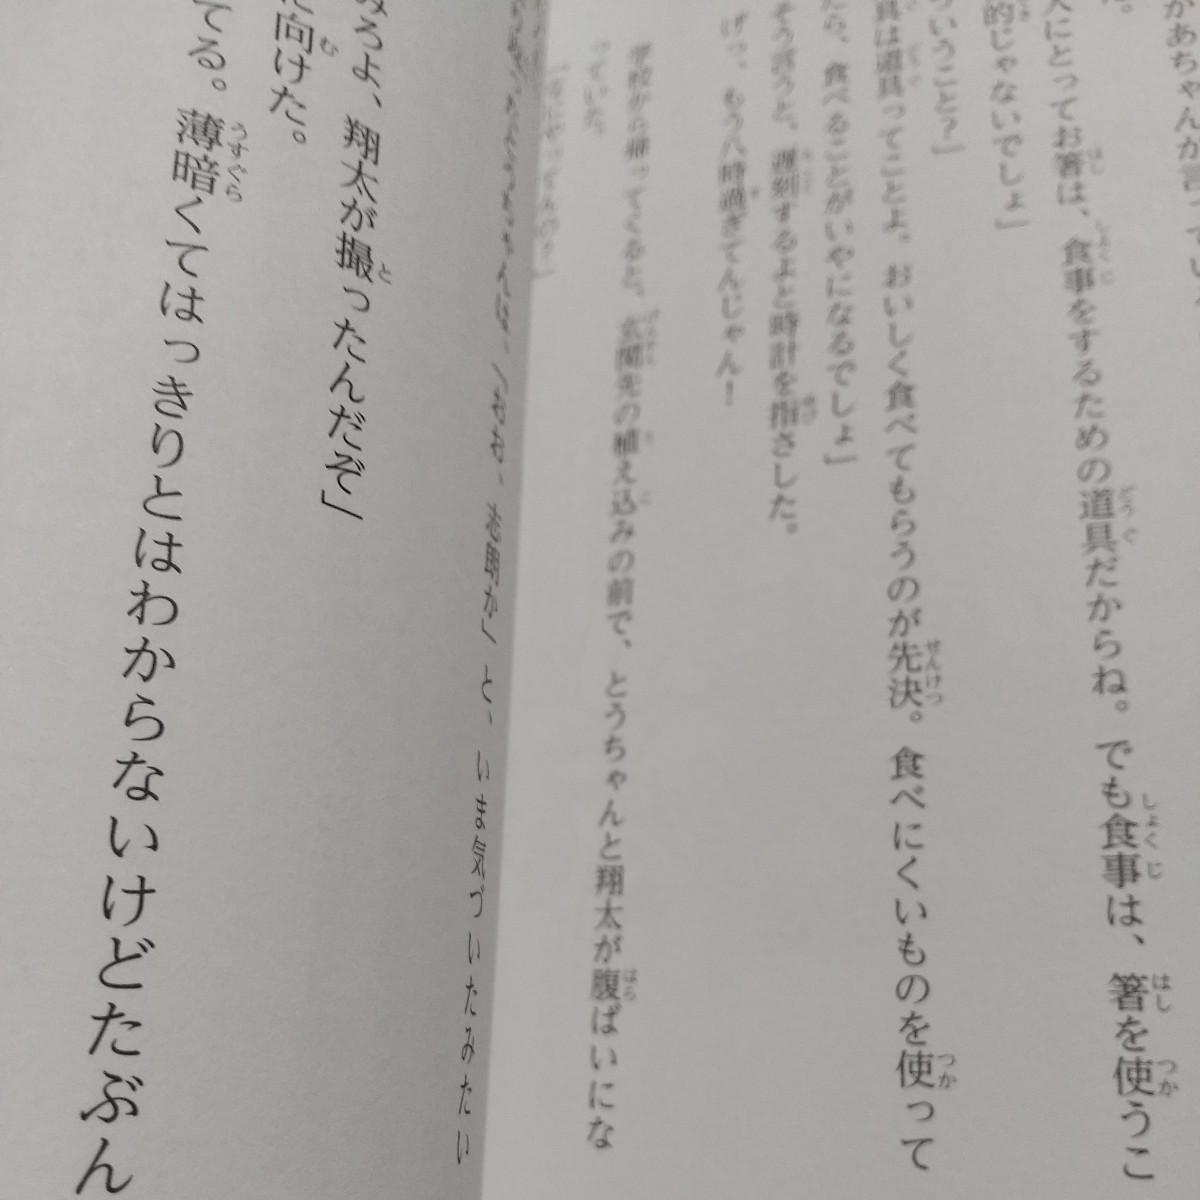 があちゃんが言ってい
人にとってお箸は、食事をするための道具だからね。でも食事は、箸を使うこ
的じゃないでしょ」
ういうこと？」
具は道具ってことよ。おいしく食べてもらうのが先決。食べにくいものを使って
ら、食べることがいやになるでしょ」
そう言うと、遅刻するよと時計を指さした。
げっ、もう八時過ぎてんじゃん！
学校から帰ってくると、玄関先の植え込みの前で、とうちゃんと翔太が腹ばいにな
っていた。
「なにやってんの？」
とうちゃんは、〈おお、志朗か〉と、いま気づいたみたい
みろよ、翔太が撮ったんだぞ」
に向けた。
てる。薄暗くてはっきりとはわからないけどたぶん